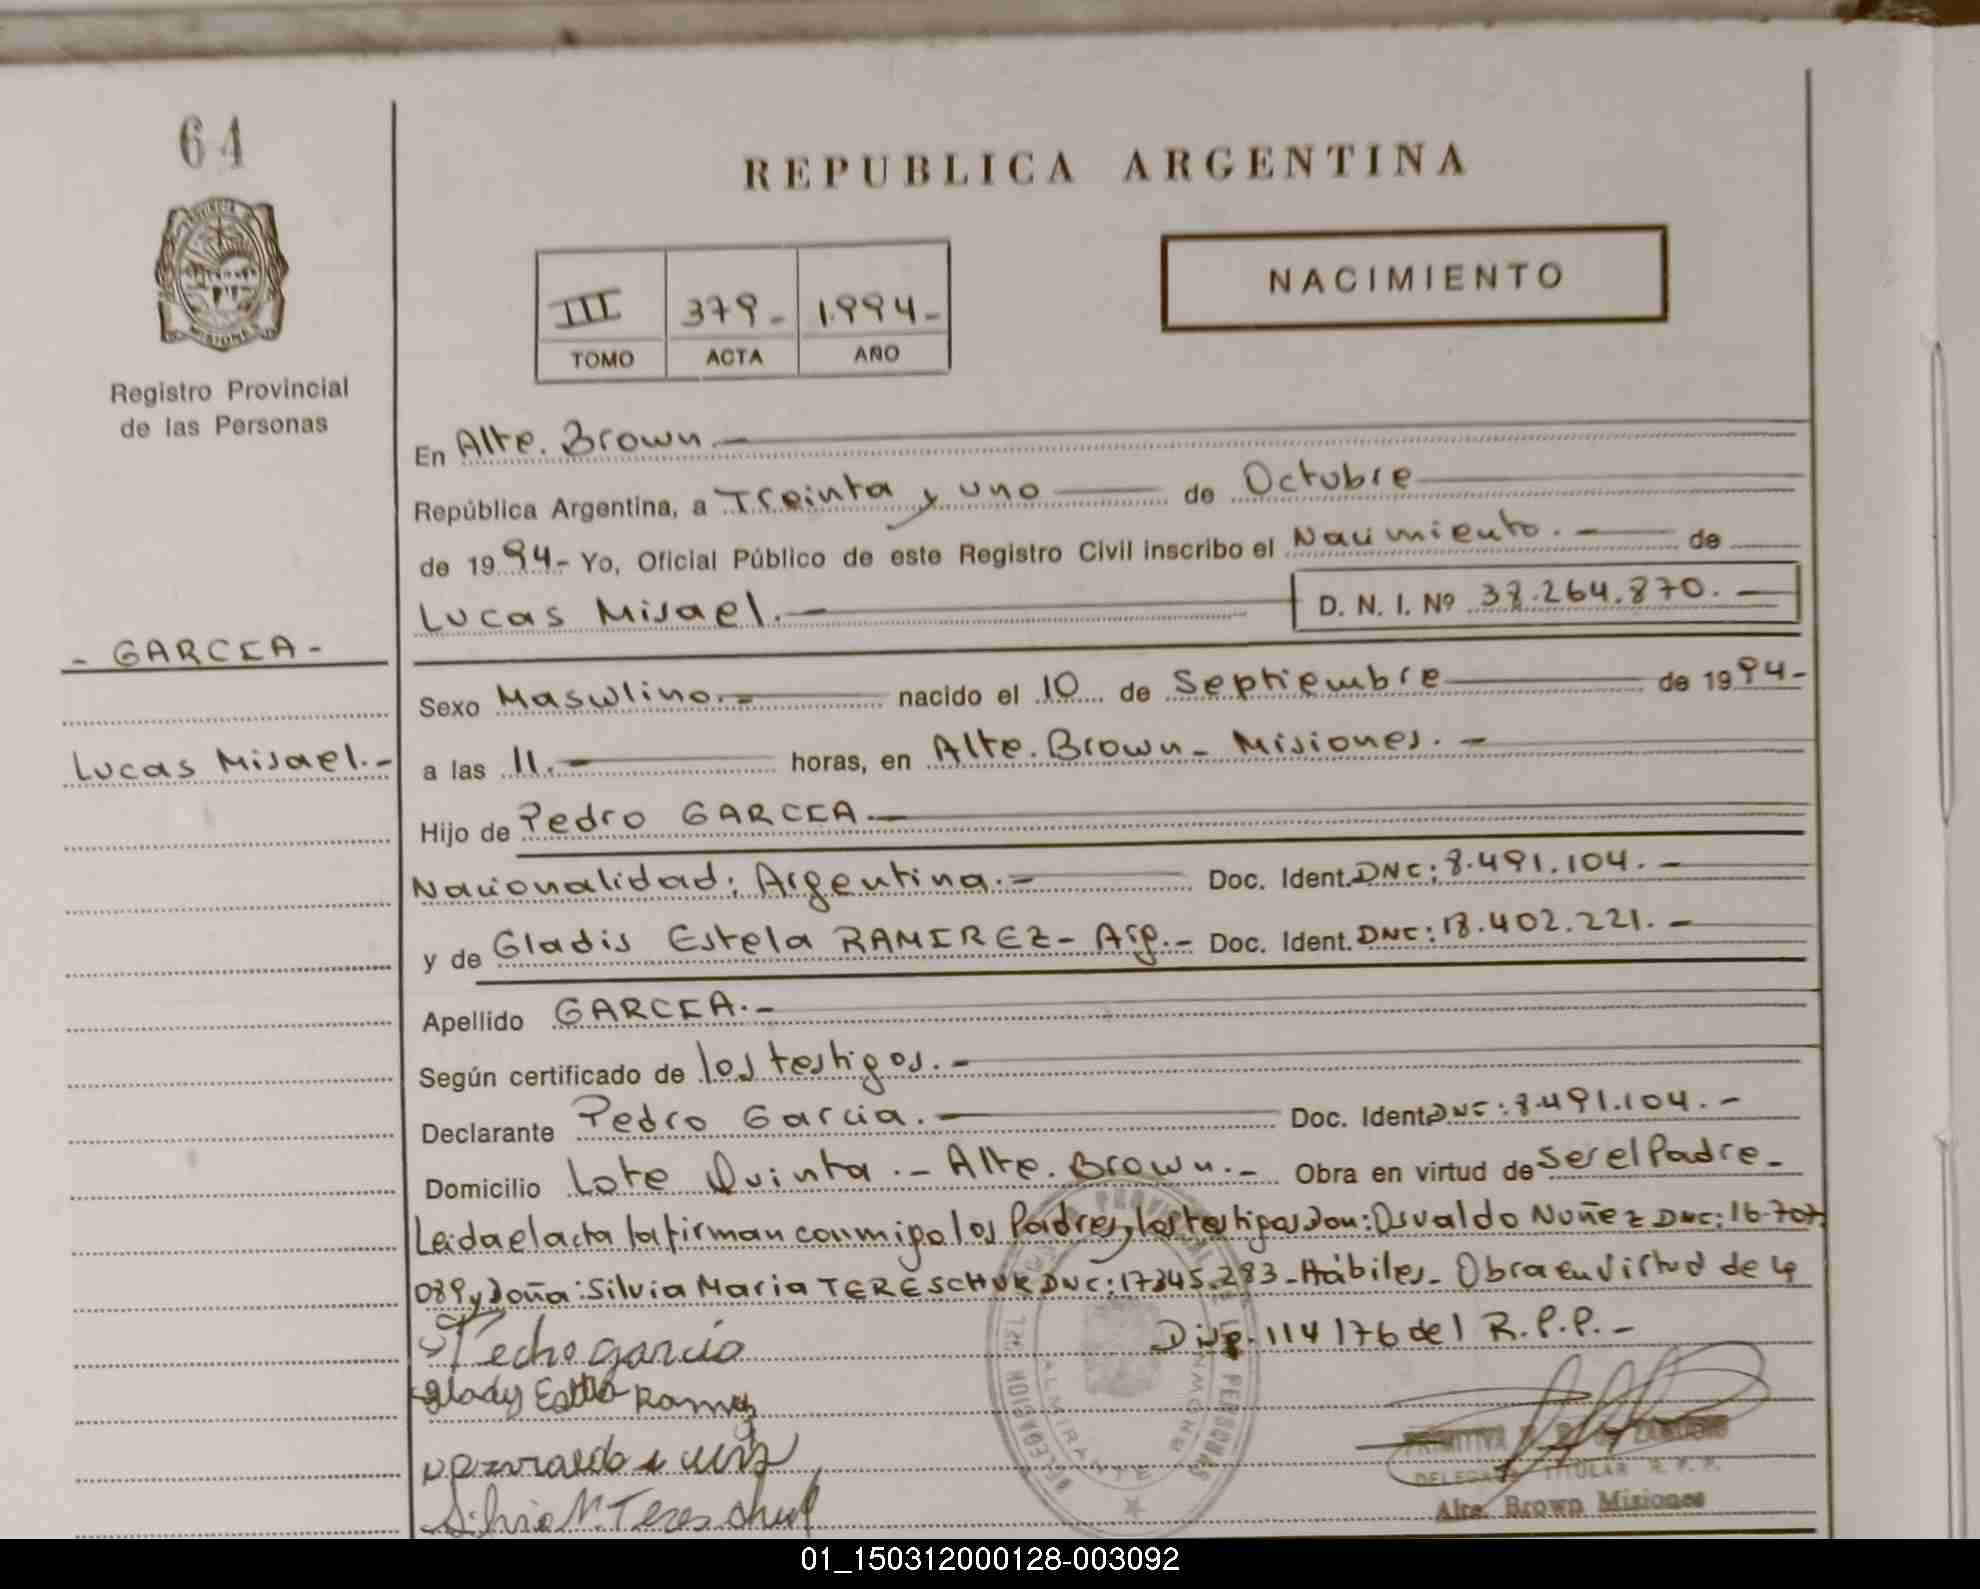 64
REPUBLICA ARGENTINA
NACIMIENTO
III 379- 1.994-
TOMO ACTA AÑO
MISIONES
Registro Provincial
de las Personas
En Alte. Brown.-
República Argentina, a Treinta y uno de Octubre
de 1994- Yo, Oficial Público de este Registro Civil inscribo el Nacimiento.- de
Lucas Misael.- D. N. I. Nº 38.264.870.-
- GARCIA -
Sexo Masculino.- nacido el 10 de Septiembre de 1994-
Lucas Misael.-
a las 11.- horas, en Alte. Brown - Misiones.-
Hijo de Pedro GARCIA.-
Nacionalidad: Argentina.- Doc. Ident. DNI: 8.491.104.-
y de Gladis Estela RAMIREZ - Arg.- Doc. Ident. DNI: 18.402.221.-
Apellido GARCIA.-
Según certificado de los testigos.-
Declarante Pedro Garcia.- Doc. Ident. DNI: 8.491.104.-
Domicilio Lote Quinta.- Alte. Brown.- Obra en virtud de ser el Padre-
Leida el acta la firman conmigo los Padres y los testigos Don: Osvaldo Nuñez DNI: 16.707.
089 y Doña: Silvia Maria TERESCHUK DNI: 17.345.283- Hábiles- Obra en virtud de la
Disp. 114/76 del R.P.P.-
garcia
Glady Estela Ramirez
Silvia M. Tereschuk
PROVINCIAL DE LAS PERSONAS
DELEGACION
ALMIRANTE BROWN
PRIMITIVA
DELEGADA TITULAR R. P. P.
Alte. Brown Misiones
01_150312000128-003092